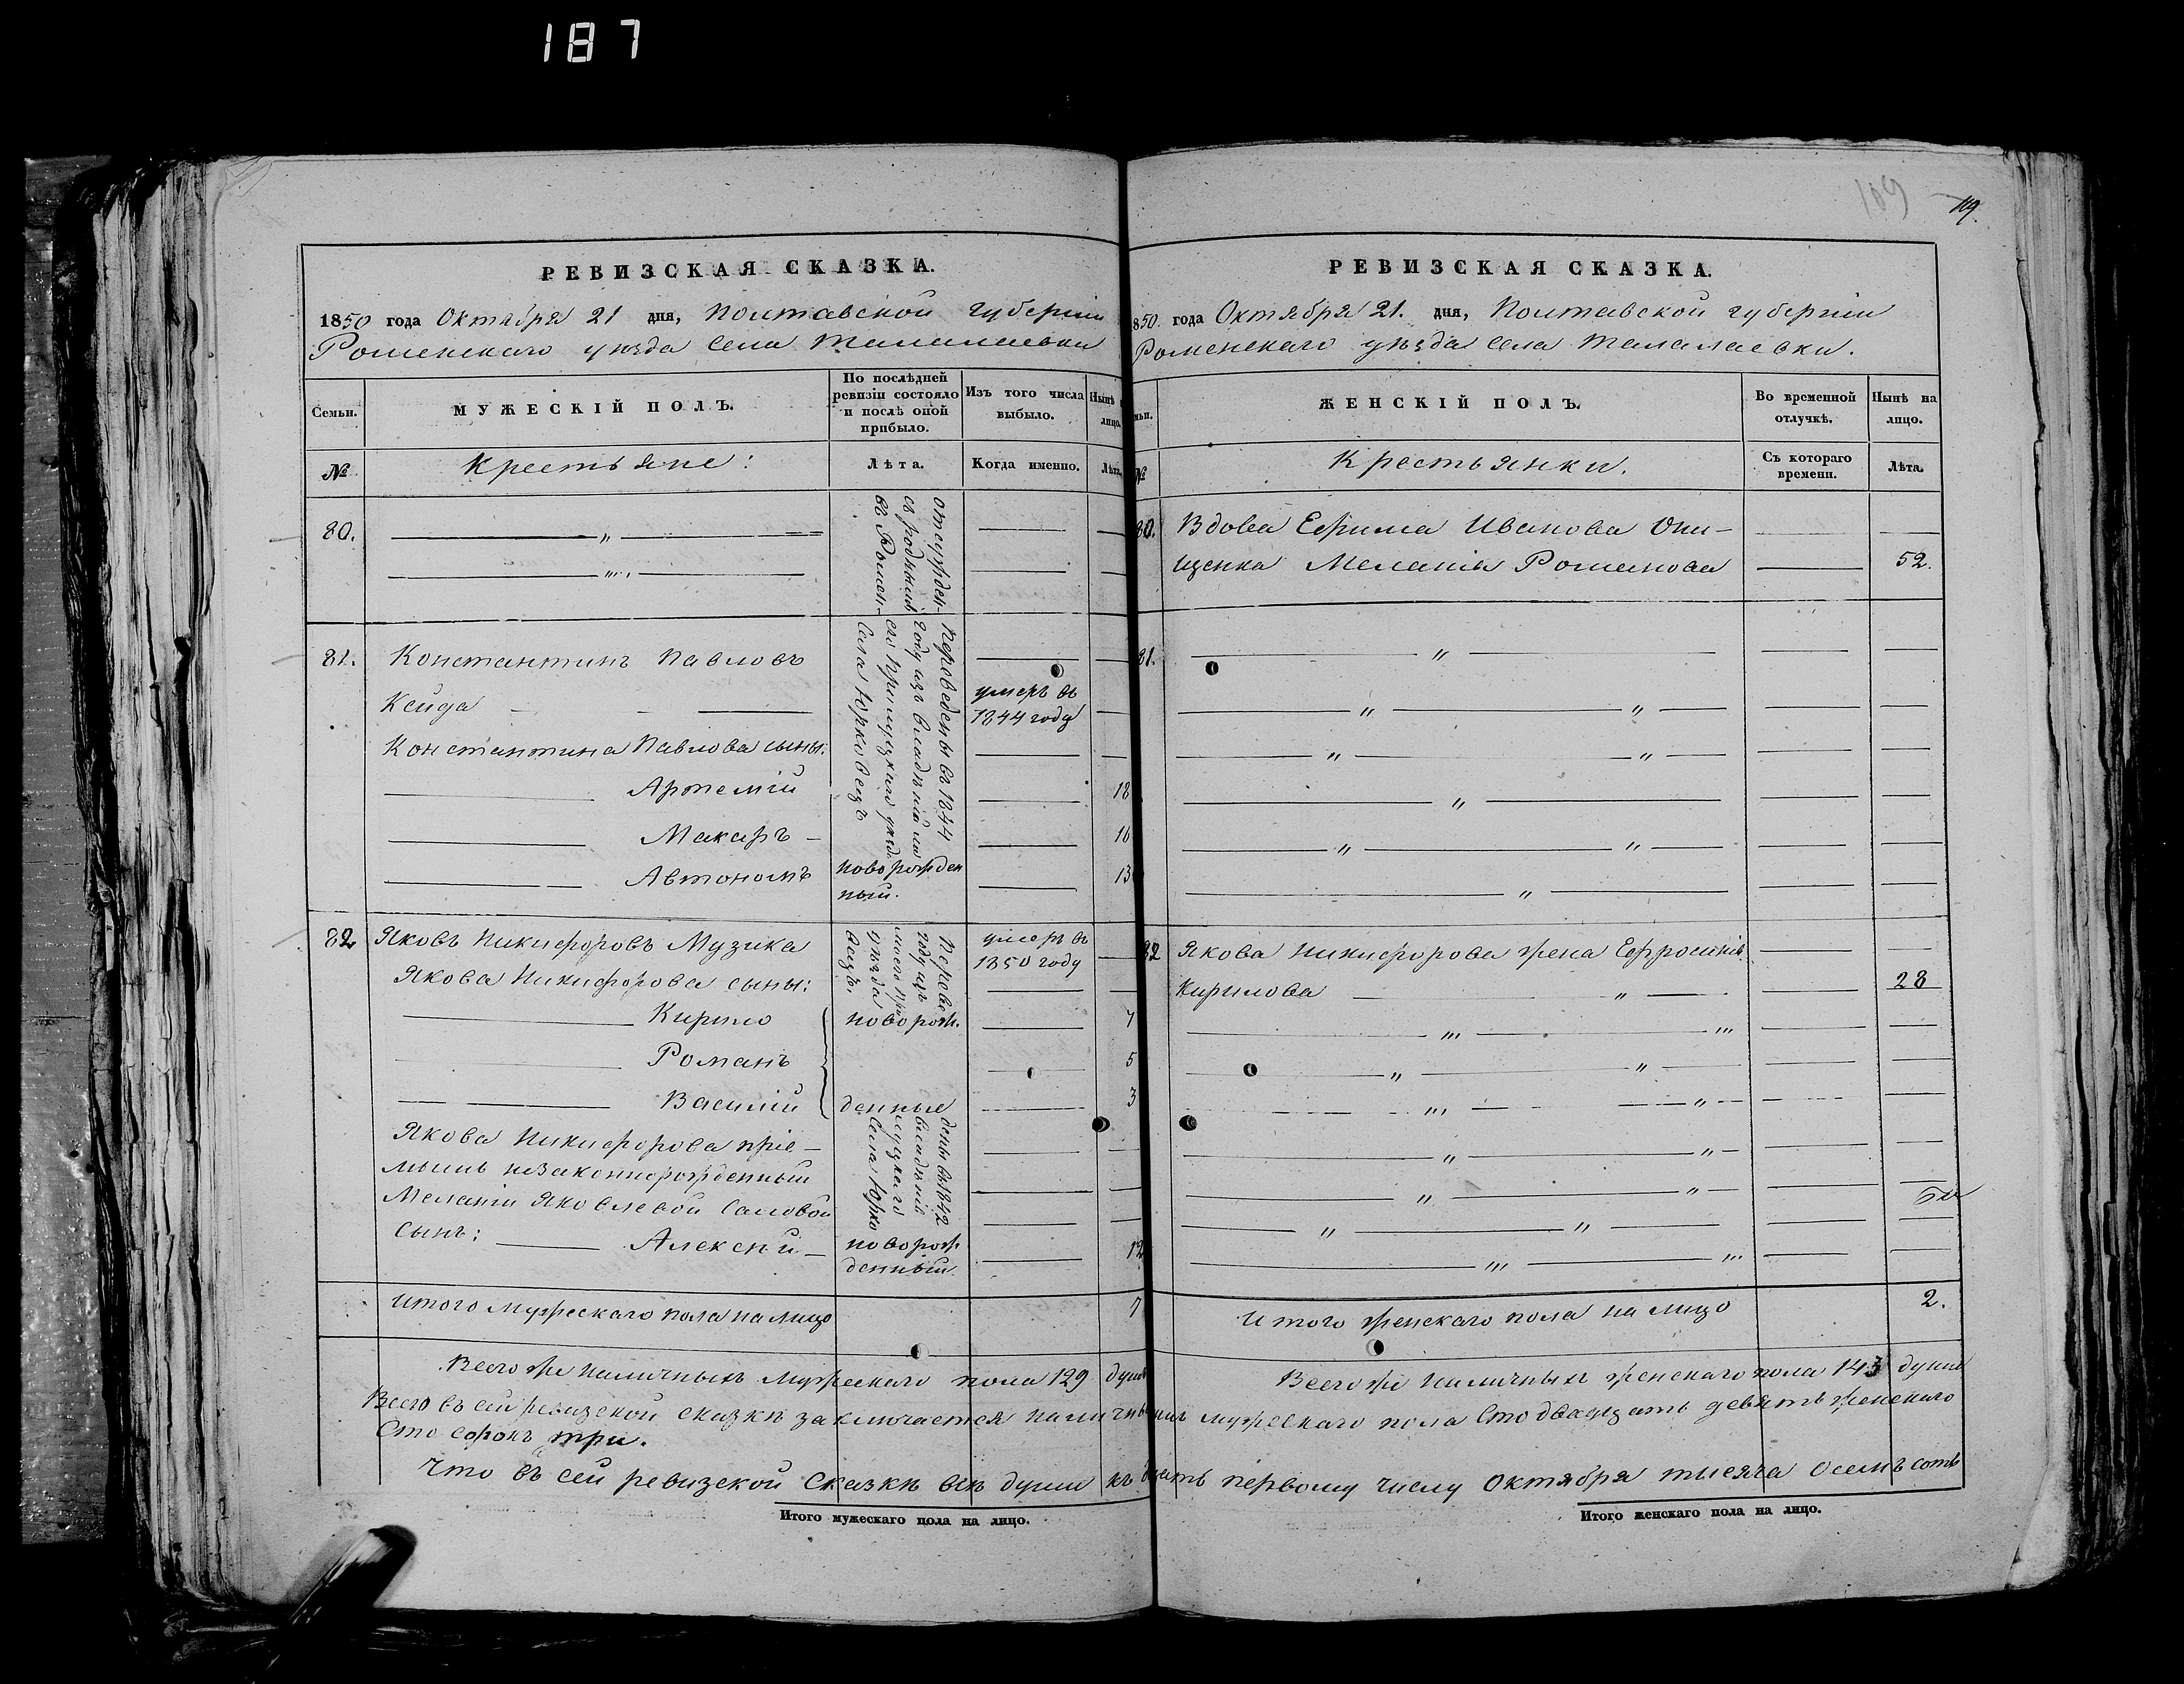 187
109
119.
РЕВИЗСКАЯ СКАЗКА.
1850 года Октября 21 дня, Полтавской губерніи
Роменскаго уѣзда села Талалаевки
Семьи.
МУЖЕСКІЙ ПОЛЪ.
По послѣдней
ревизіи состояло
и послѣ оной
прибыло.
Изъ того числа
выбыло.
Нынѣ
лицо.
№
Крестьяне:
Лѣта.
Когда именно.
Лѣта.
80.
отсужден-
въ Ромен-
81.
Константинъ Павловъ
Кейда
умеръ въ
1844 году
Константина Павлова сыны:
Артемій
18
Макаръ
16
Автономъ
новорожден
ный.
13
переведены въ 1844
году изъ владѣнія
села Юрковецъ
82
Яковъ Никифоровъ Музика
умеръ въ
1850 году
Якова Никифорова сыны:
Кирило
новорож.
7
Романъ
5
Василій
денные
3
Якова Никифорова пріе-
мышъ незаконнорожденный
Меланіи Яковлевой
сынъ:
Алексѣй
новорож
денный
12
Перове
году изъ
уѣзда
вецъ.
дены въ 1842
владѣнія
села Юрко
Итого мужескаго пола на лицо
7
Всего же наличныхъ мужескаго пола 129 душъ
РЕВИЗСКАЯ СКАЗКА.
850 года Октября 21. дня, Полтавской губерніи
Роменскаго уѣзда села Талалаевки.
ьи.
ЖЕНСКІЙ ПОЛЪ.
Во временной
отлучкѣ.
Нынѣ на
лицо.
№
Крестьянки.
Съ котораго
времени.
Лѣта.
80.
Вдова Ефрима Иванова Они-
щенка Меланія Романова
52.
81.
82
Якова Никифорова жена Ефросинія
Кирилова
28
Итого женскаго пола на лицо
2.
Всего же наличныхъ женскаго пола 143 души
Всего въ сей ревизской сказкѣ заключается наличныхъ мужескаго пола сто двадцать девять женскаго
Сто сорокъ три.
Что въ сей ревизской сказкѣ всѣ души къ первому числу Октября тысяча осемъ сотъ
Итого мужескаго пола на лицо.
Итого женскаго пола на лицо.